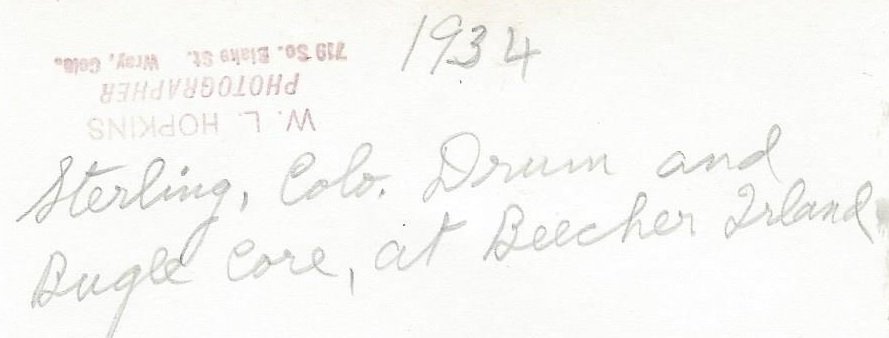 1934
W. L. HOPKINS
PHOTOGRAPHER
719 So. Blake St. Wray, Colo.
Sterling, Colo. Drum and
Bugle Core, at Beecher Island